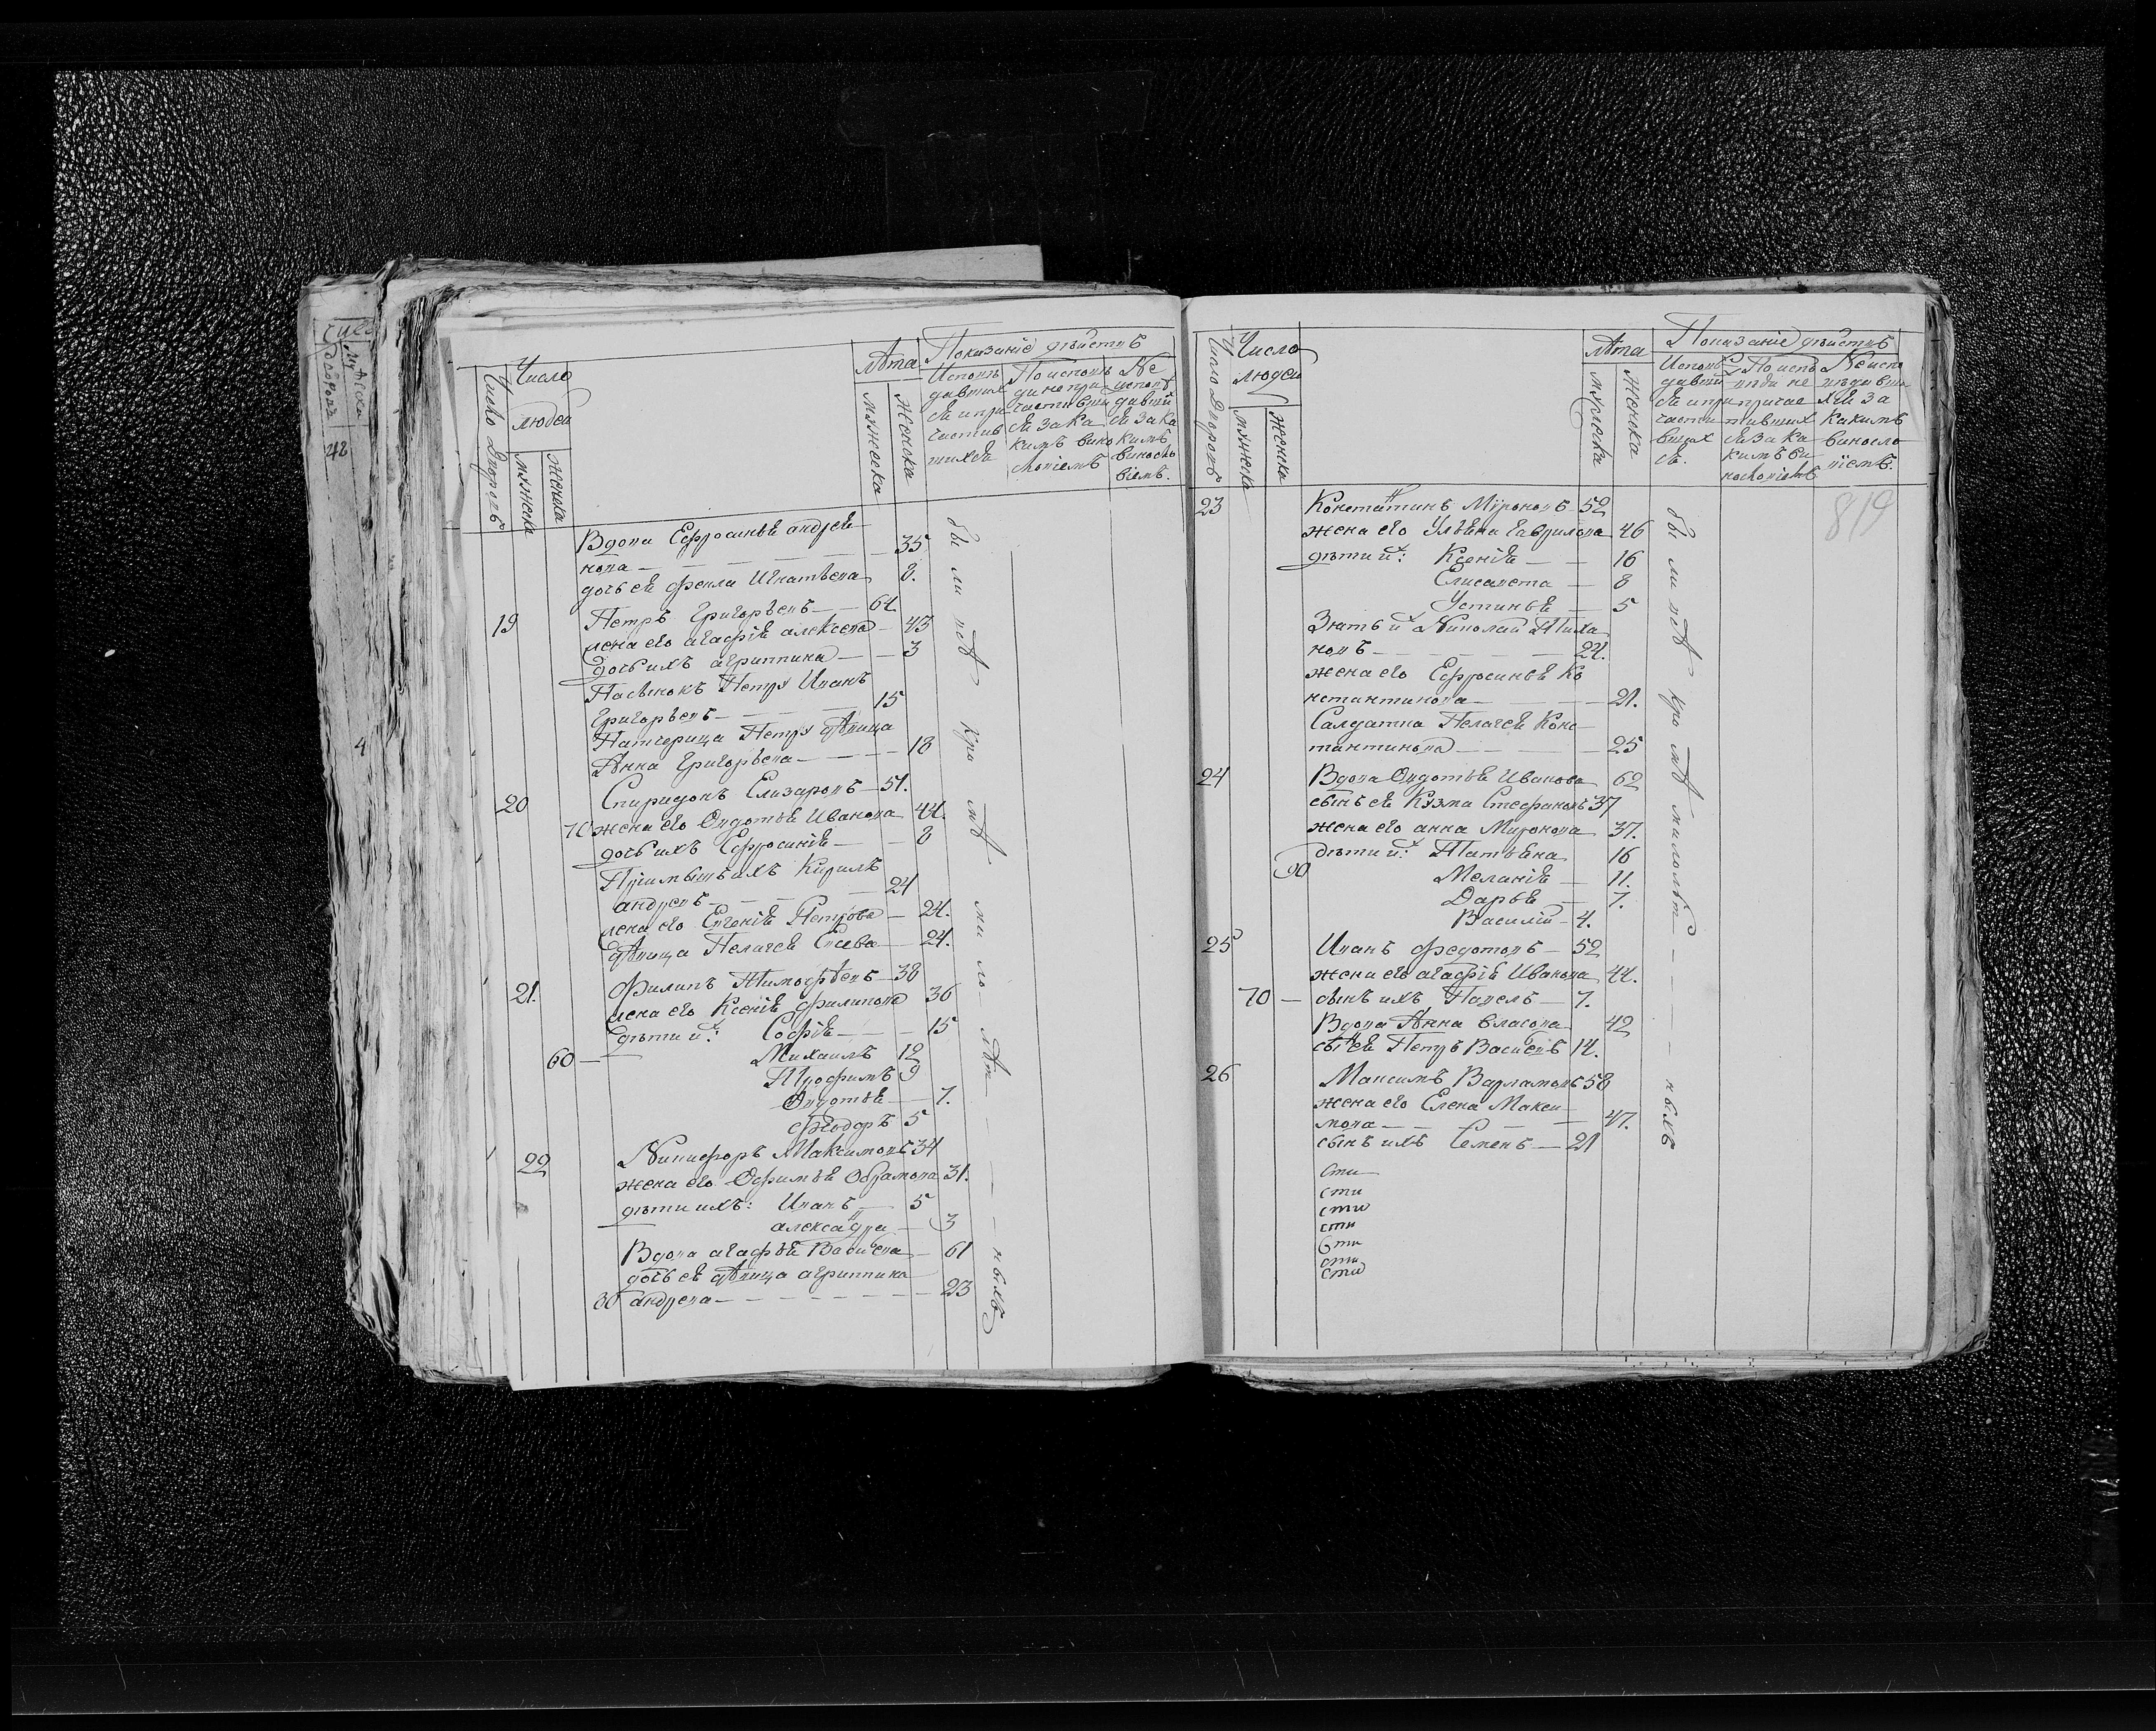 Число Дворовъ
Число
людей
мужеска
женска
Лѣта
мужеска
женска
Показаніе дѣйствъ
Исповѣ
давших
ся и при
частив
шихся
По исповѣ
ди не при
частивши
ся за ка
кимъ вино
словіемъ
Не
исповѣ
давши
ся за ка
кимъ
виносло
віемъ.
Вдова Ефросинья андрее
нова — 35
дочь ея фекла Игнатьева 8.
19 Петръ Григорьевъ — 64.
жена его агафія алексева 43
дочь ихъ агриппина — 3
Пасынокъ Петра Иванъ
Григорьевъ — 15
Патчерица Петра дѣвица
Анна Григорьева — 18
20 Спиридонъ Елизаровъ — 51.
70 жена его Овдотья Иванова 44.
дочь ихъ Ефросинія — 8
Пріимышъ ихъ Кирилъ
андреевъ — 24
жена его Евгенія Петрова — 24.
дѣвица Пелагея — 24.
21. Филипъ Тимофѣевъ — 38
жена его Ксенія филипова 36
дѣти их: Софія — 15
60 — Михаилъ 12
Трофимъ 9
Овдотья — 7.
Феодоръ 5
22 Никифоръ Максимовъ 34
жена его Офимья Обрамова 31.
дѣти ихъ: Иванъ — 5
алексадра — 3
Вдова агафья Васиева — 61
дочь ея дѣвица агриппина
80 андреева — 23
бы ли всѣ кро мѣ ма ло лѣт — — — ныхъ
Число Дворовъ
Число
людей
мужеска
женска
Лѣта
мужеска
женска
Показаніе дѣйствъ
Исповѣ
давши
ся и при
части
вших
ся.
По испо
вѣди не
причас
тивших
ся за ка
кимъ ви
нословіемъ
Не испо
вѣдавши
хся за
какимъ
виносло
віемъ.
819
23 Констатинъ Муроновъ 52
жена его Ульяна Гаврилова 46
дѣти их: Ксенія — 16
Елисавета — 8
Устинья — 5
Зять их Николай Тиха
новъ — 24.
жена его Ефросинья Ко
нстантинова — 21.
Салдатка Пелагея Конс
тантинова — 25
24 Вдова Овдотья Иванова 62
сынъ ея Кузма Стефановъ 37
жена его анна Миронова 37.
дѣти их: Татьяна 16
90 Меланія — 11.
Дарья — 7.
Василій — 4.
25 Иванъ Федотовъ — 52
жена его агафія Иванова 44.
70 — сынъ ихъ Павелъ — 7.
Вдова Анна Власова 42
сынъ ея Петръ Васиевъ 14.
26 Максимъ Варламовъ 58
жена его Елена Макси
мова — 47.
сынъ ихъ Семенъ — 21
сти
сти
сти
сти
сти
сти
сти
бы ли всѣ кро мѣ малолѣт — — — — ныхъ
42
4